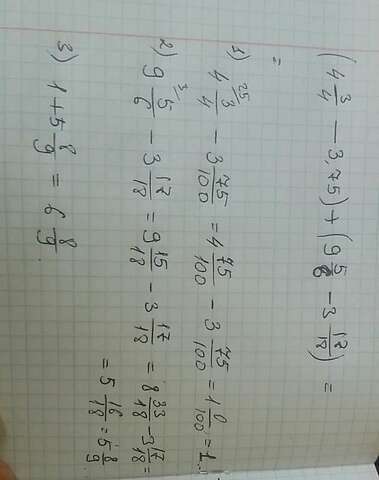 (4 3/4 — 3,75) + (9 5/6 - 3 17/18) =
=
1) 4 3/4 ²⁵ - 3 75/100 = 4 75/100 - 3 75/100 = 1 0/100 = 1.
2) 9 5/6 ³ - 3 17/18 = 9 15/18 - 3 17/18 = 8 33/18 - 3 17/18 =
= 5 16/18 = 5 8/9.
3) 1 + 5 8/9 = 6 8/9.